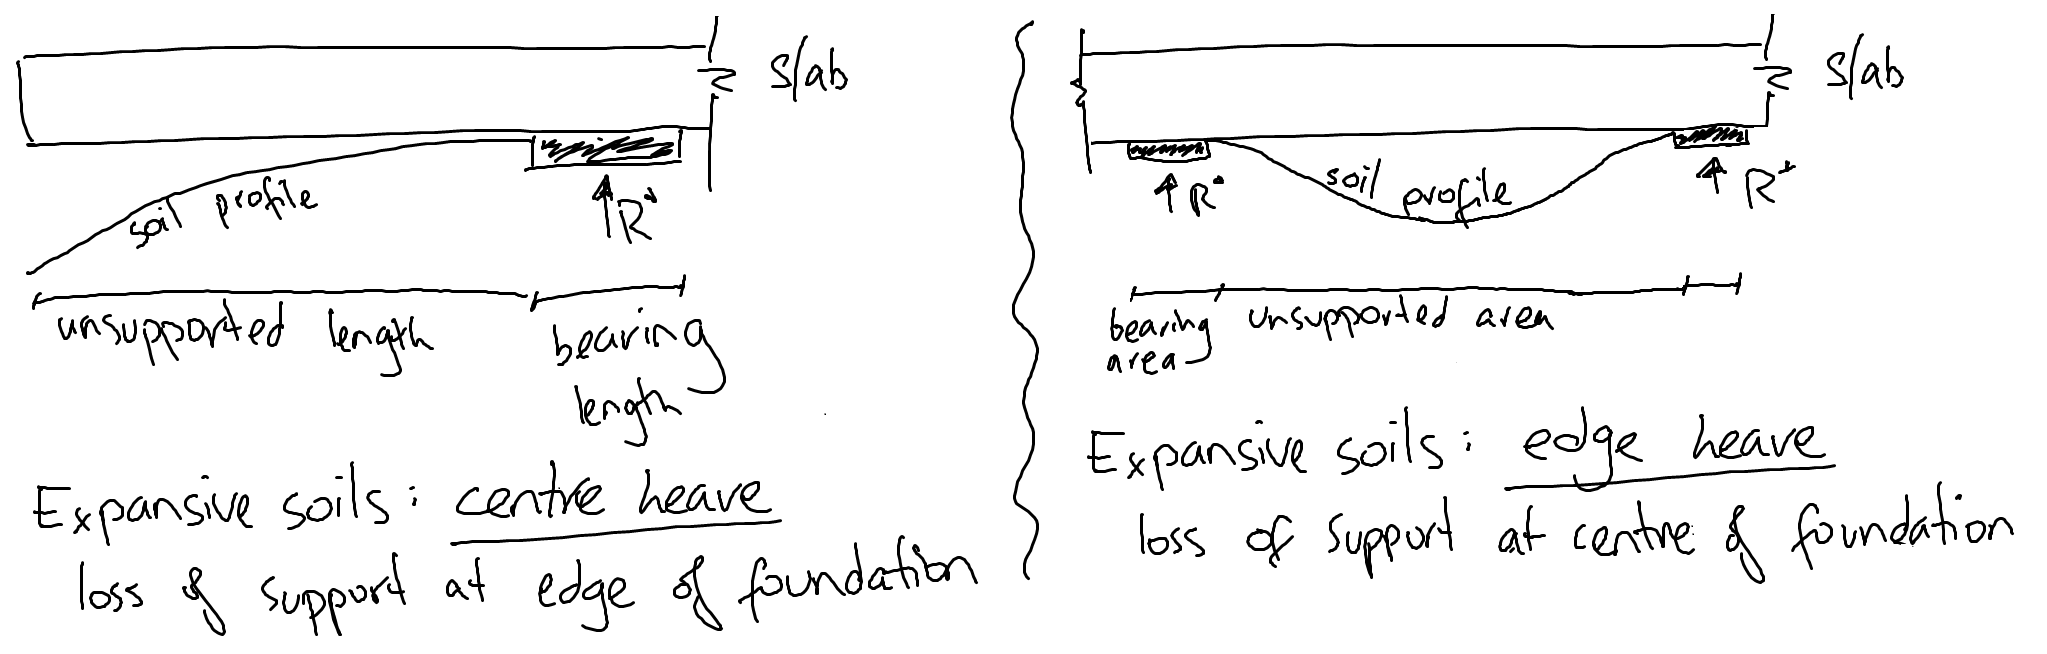 Slab
soil profile
R*
unsupported length
bearing
length
Expansive soils: centre heave
loss of support at edge of foundation
Slab
soil profile
R*
R*
bearing
area
unsupported area
Expansive soils: edge heave
loss of support at centre of foundation